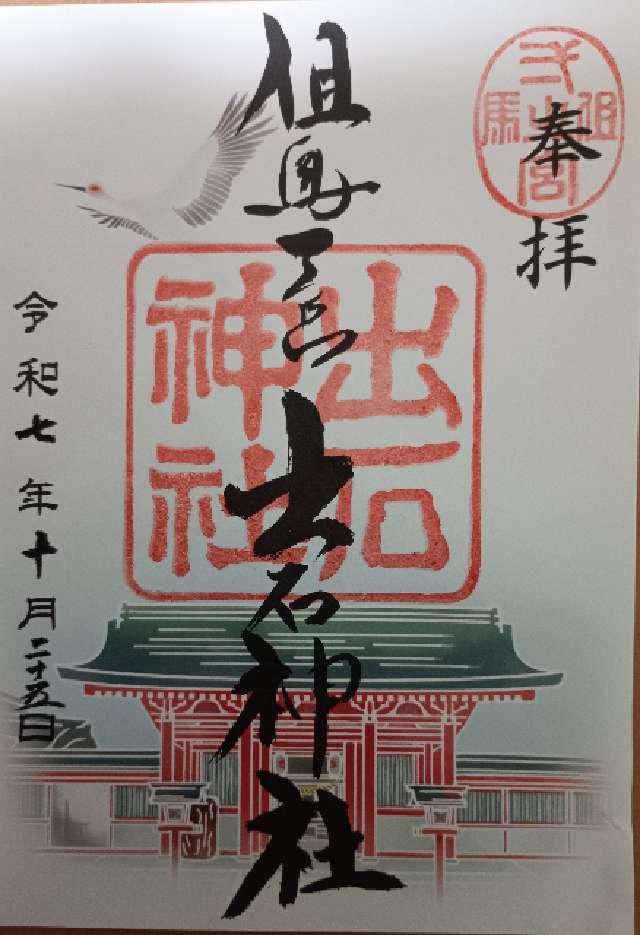 奉拝
但馬
之宮
但馬一宮 出石神社
出石
神社
令和七年十月二十五日